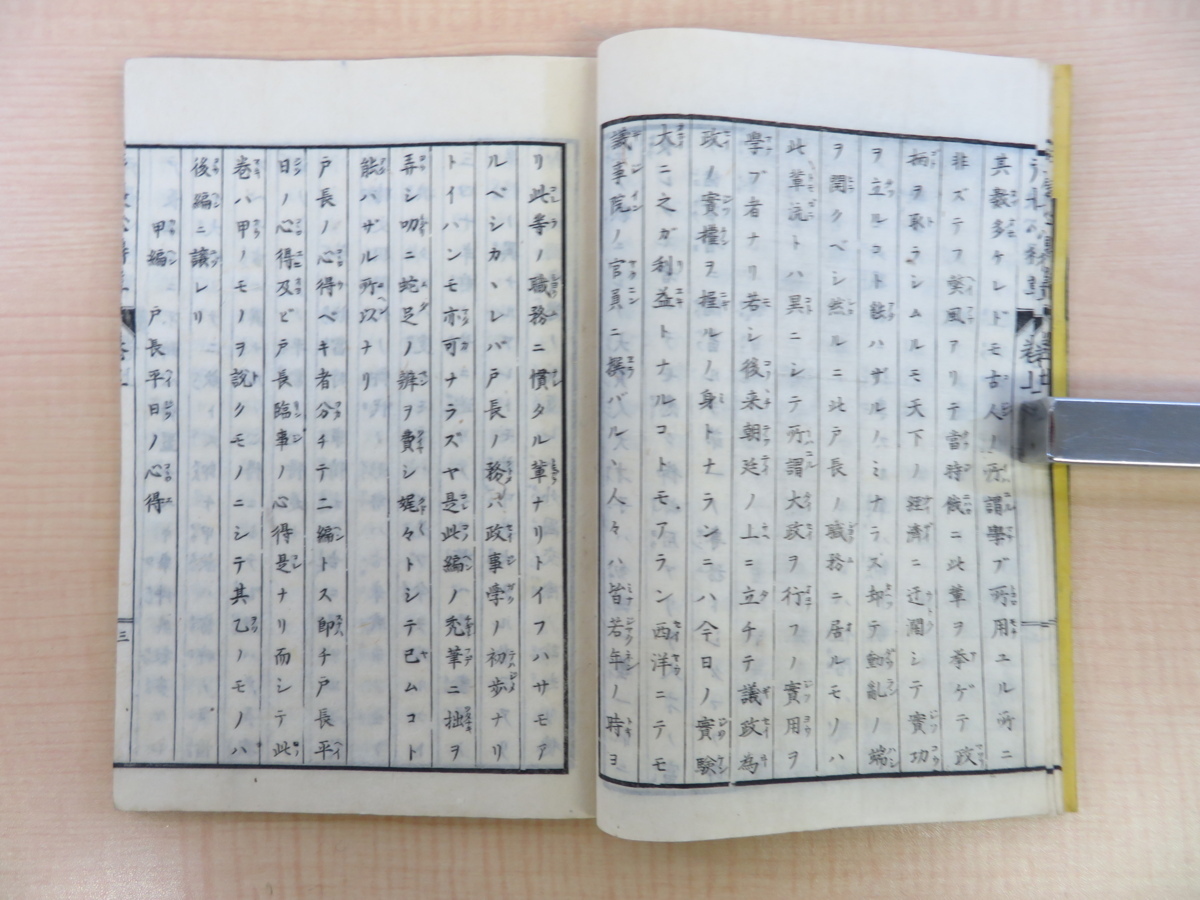 其數多ケレドモ古人ノ所謂學ブ所用ユル所ニ
非ズテフ獘風アリテ當時俄ニ此輩ヲ挙ゲテ政
柄ヲ取ラシムルモ天下ノ經濟ニ迂濶シテ實功
ヲ立ルコト能ハザルノミナラズ却テ動亂ノ端
ヲ開クベシ然ルニ此戸長ノ職務ニ居ルモノハ
此輩流トハ異ニシテ所謂大政ヲ行フノ實用ヲ
學ブ者ナリ若シ後来朝廷ノ上ニ立チテ議政為
政ノ實權ヲ握ルノ身トナランニハ今日ノ實驗
大ニ之ガ利益トナルコトモアラン西洋ニテモ
議事院ノ官員ニ撰バルヽ人々ハ皆若年ノ時ヨ
リ此等ノ職務ニ慣タル輩ナリトイフハサモア
ルベシカヽレバ戸長ノ務ハ政事学ノ初歩ナリ
トイハンモ亦可ナラズヤ是此編ノ禿筆ニ拙ヲ
弄シ叨ニ蛇足ノ辨ヲ費シ娓々トシテ已ムコト
能ハザル所以ナリ
戸長ノ心得ベキ者分チテ二編トス即チ戸長平
日ノ心得及ビ戸長臨事ノ心得是ナリ而シテ此
巻ハ甲ノモノヲ說クモノニシテ其乙ノモノハ
後編ニ讓レリ
甲編 戸長平日ノ心得
三